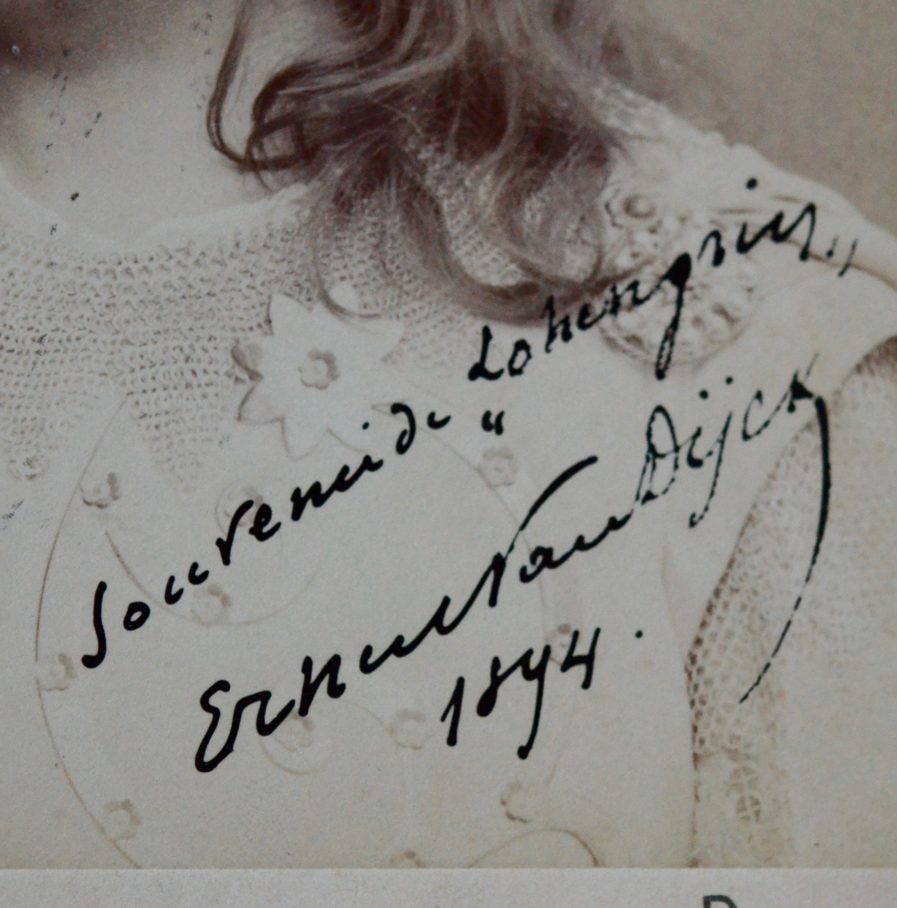 Souvenir de „Lohengrin"
Ernest Van Dijck
1894.